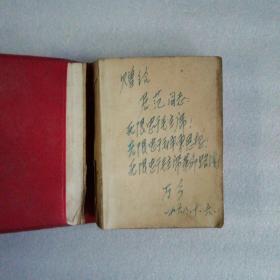 赠给
范同志
无限忠于毛主席！
无限忠于毛泽东思想
无限忠于毛主席革命路线
一九六八.十.六